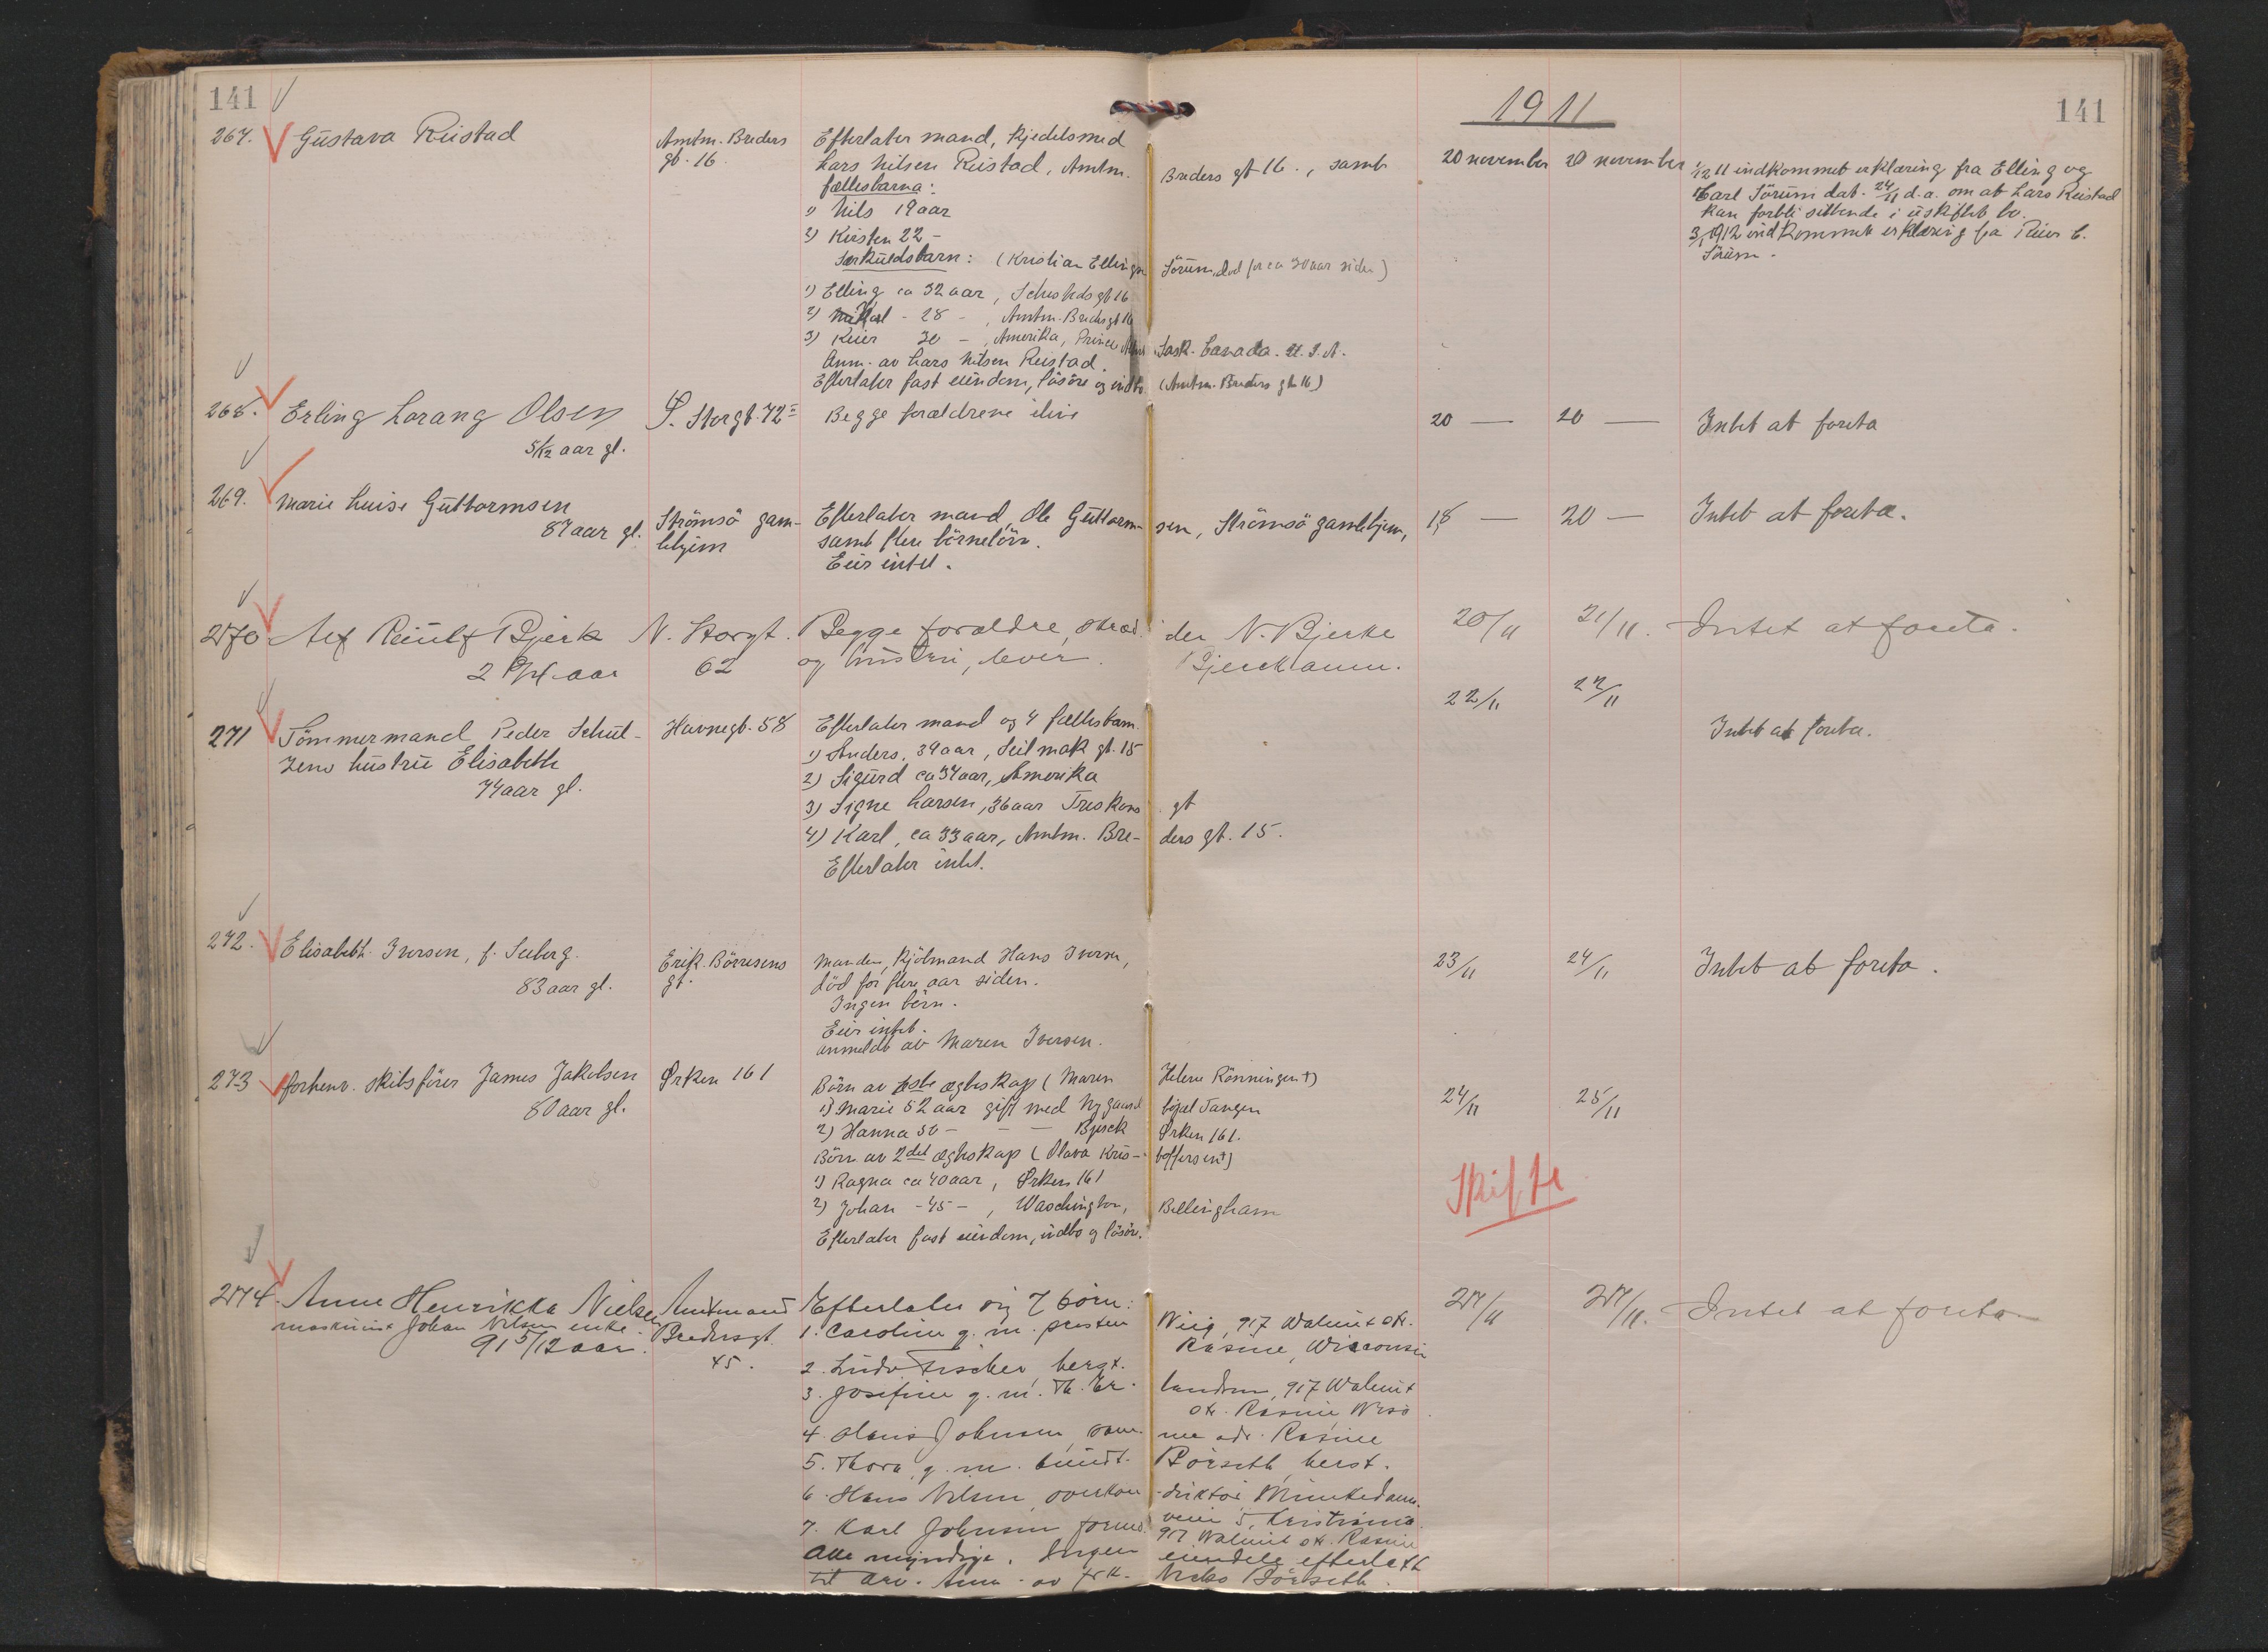 141
1911
141
267. Gustava Reistad
Amtm. Breders
gt. 16
Efterlater mand, kjedelsmed
Lars Nilsen Reistad, Amtm. Breders gt 16., samt
fællesbarna:
1) Nils 19 aar
2) Kirsten 22 -
Særkuldsbarn: (Kristian Ellingsen Sørum, død for ca 30 aar siden)
1) Elling ca 32 aar, gt 16
2) Karl - 28 - , Amtm. Breders gt 16
3) Reier 30 - , Amerika, Prince Albert Sask. Canada. U.S.A.
Anm. av Lars Nilsen Reistad.
Efterlater fast eiendom, løsøre og indbo (Amtm. Breders gt 16)
20 november 20 november
1/12 11 indkommet erklæring fra Elling og
Carl Sörum dat. 24/11 d.a. om at Lars Reistad
kan forbli sittende i uskiftet bo.
3/1 1912 indkommet erklæring fra Reier C.
Sörum.
268. Erling Lorang Olsen
5/12 aar gl.
S. Storgt. 72
Begge forældrene ilive
20 — 20 — Intet at foreta
269. Marie Luise Guttormsen
87 aar gl.
Strömsö gam-
lehjem
Efterlater mand Ole Guttorm- sen, Strömsö gamlehjem,
samt flere börnebörn.
Eier intet.
18 — 20 — Intet at foreta.
270 Alf Reiulf Bjerk
2 aar
N. Storgt.
62
Begge forældre, skræd- der N. Bjerke
og hustru, lever. Bjerck anm.
20/11 21/11. Intet at foreta.
271 Tömmermand Peder Schul-
zens hustru Elisabeth
74 aar gl.
Havnegt. 58
Efterlater mand og 4 fællesbarn.
1) Anders, 39 aar, Seilmak gt. 15
2) Sigurd ca 34 aar, Amerika
3) Signe Larsen, 36 aar Treskens gt
4) Karl, ca 33 aar, Amtm. Bre- ders gt. 15.
Efterlater intet.
22/11 22/11
Intet at foreta.
272. Elisabeth Iversen, f. Seeberg.
83 aar gl.
Erik Börresens
gt.
Manden, Kjölmand Hans Iversen,
död for flere aar siden.
Ingen börn.
Eier intet.
anmeldt av Maren Iversen.
23/11 24/11 Intet at foreta.
273 forhenv. skibsfører James Jakobsen
80 aar gl.
Ørken 161
Börn av 1ste egteskap (Maren Helene Rönningen †)
1) Marie 52 aar gift med Nygaard Tangen
2) Hanna 50 - - - Bjerck Ørken 161.
Börn av 2det egteskap (Olava Kris- toffersen †)
1) Ragna ca 40 aar, Ørken 161
2) Johan - 45 - , Waschington, Bellingham
Efterlater fast eiendom, indbo og løsøre.
24/11 25/11
Skifte
274. Anne Henrikka Nielsen
maskinist Johan Nilsens enke.
91 5/12 aar.
Amtmand
Bredersgt.
45.
Efterlater sig 7 börn:
1. Caroline g. m. presten Wiig, 917 Walnut str.
Rasine, Wisconsin
2. Ludv. Fischer, hergt.
3. Josefine g. m. Th. Er- landsen, 917 Walnut
str. Rasine Wiso.
4. Johnsen, sam- me adr. Rasine
5. Thora, g. m. bundt. Börseth, herst.
6. Hans Nilsen, overkon- duktör, Munkedams-
veien 5, Kristiania.
7. Karl Johnsen, 917 Walnut str. Rasine
Alle myndige. Ingen eiendele efterlatt
til arv. Anm. av frk. Börseth.
27/11 27/11. Intet at foreta.